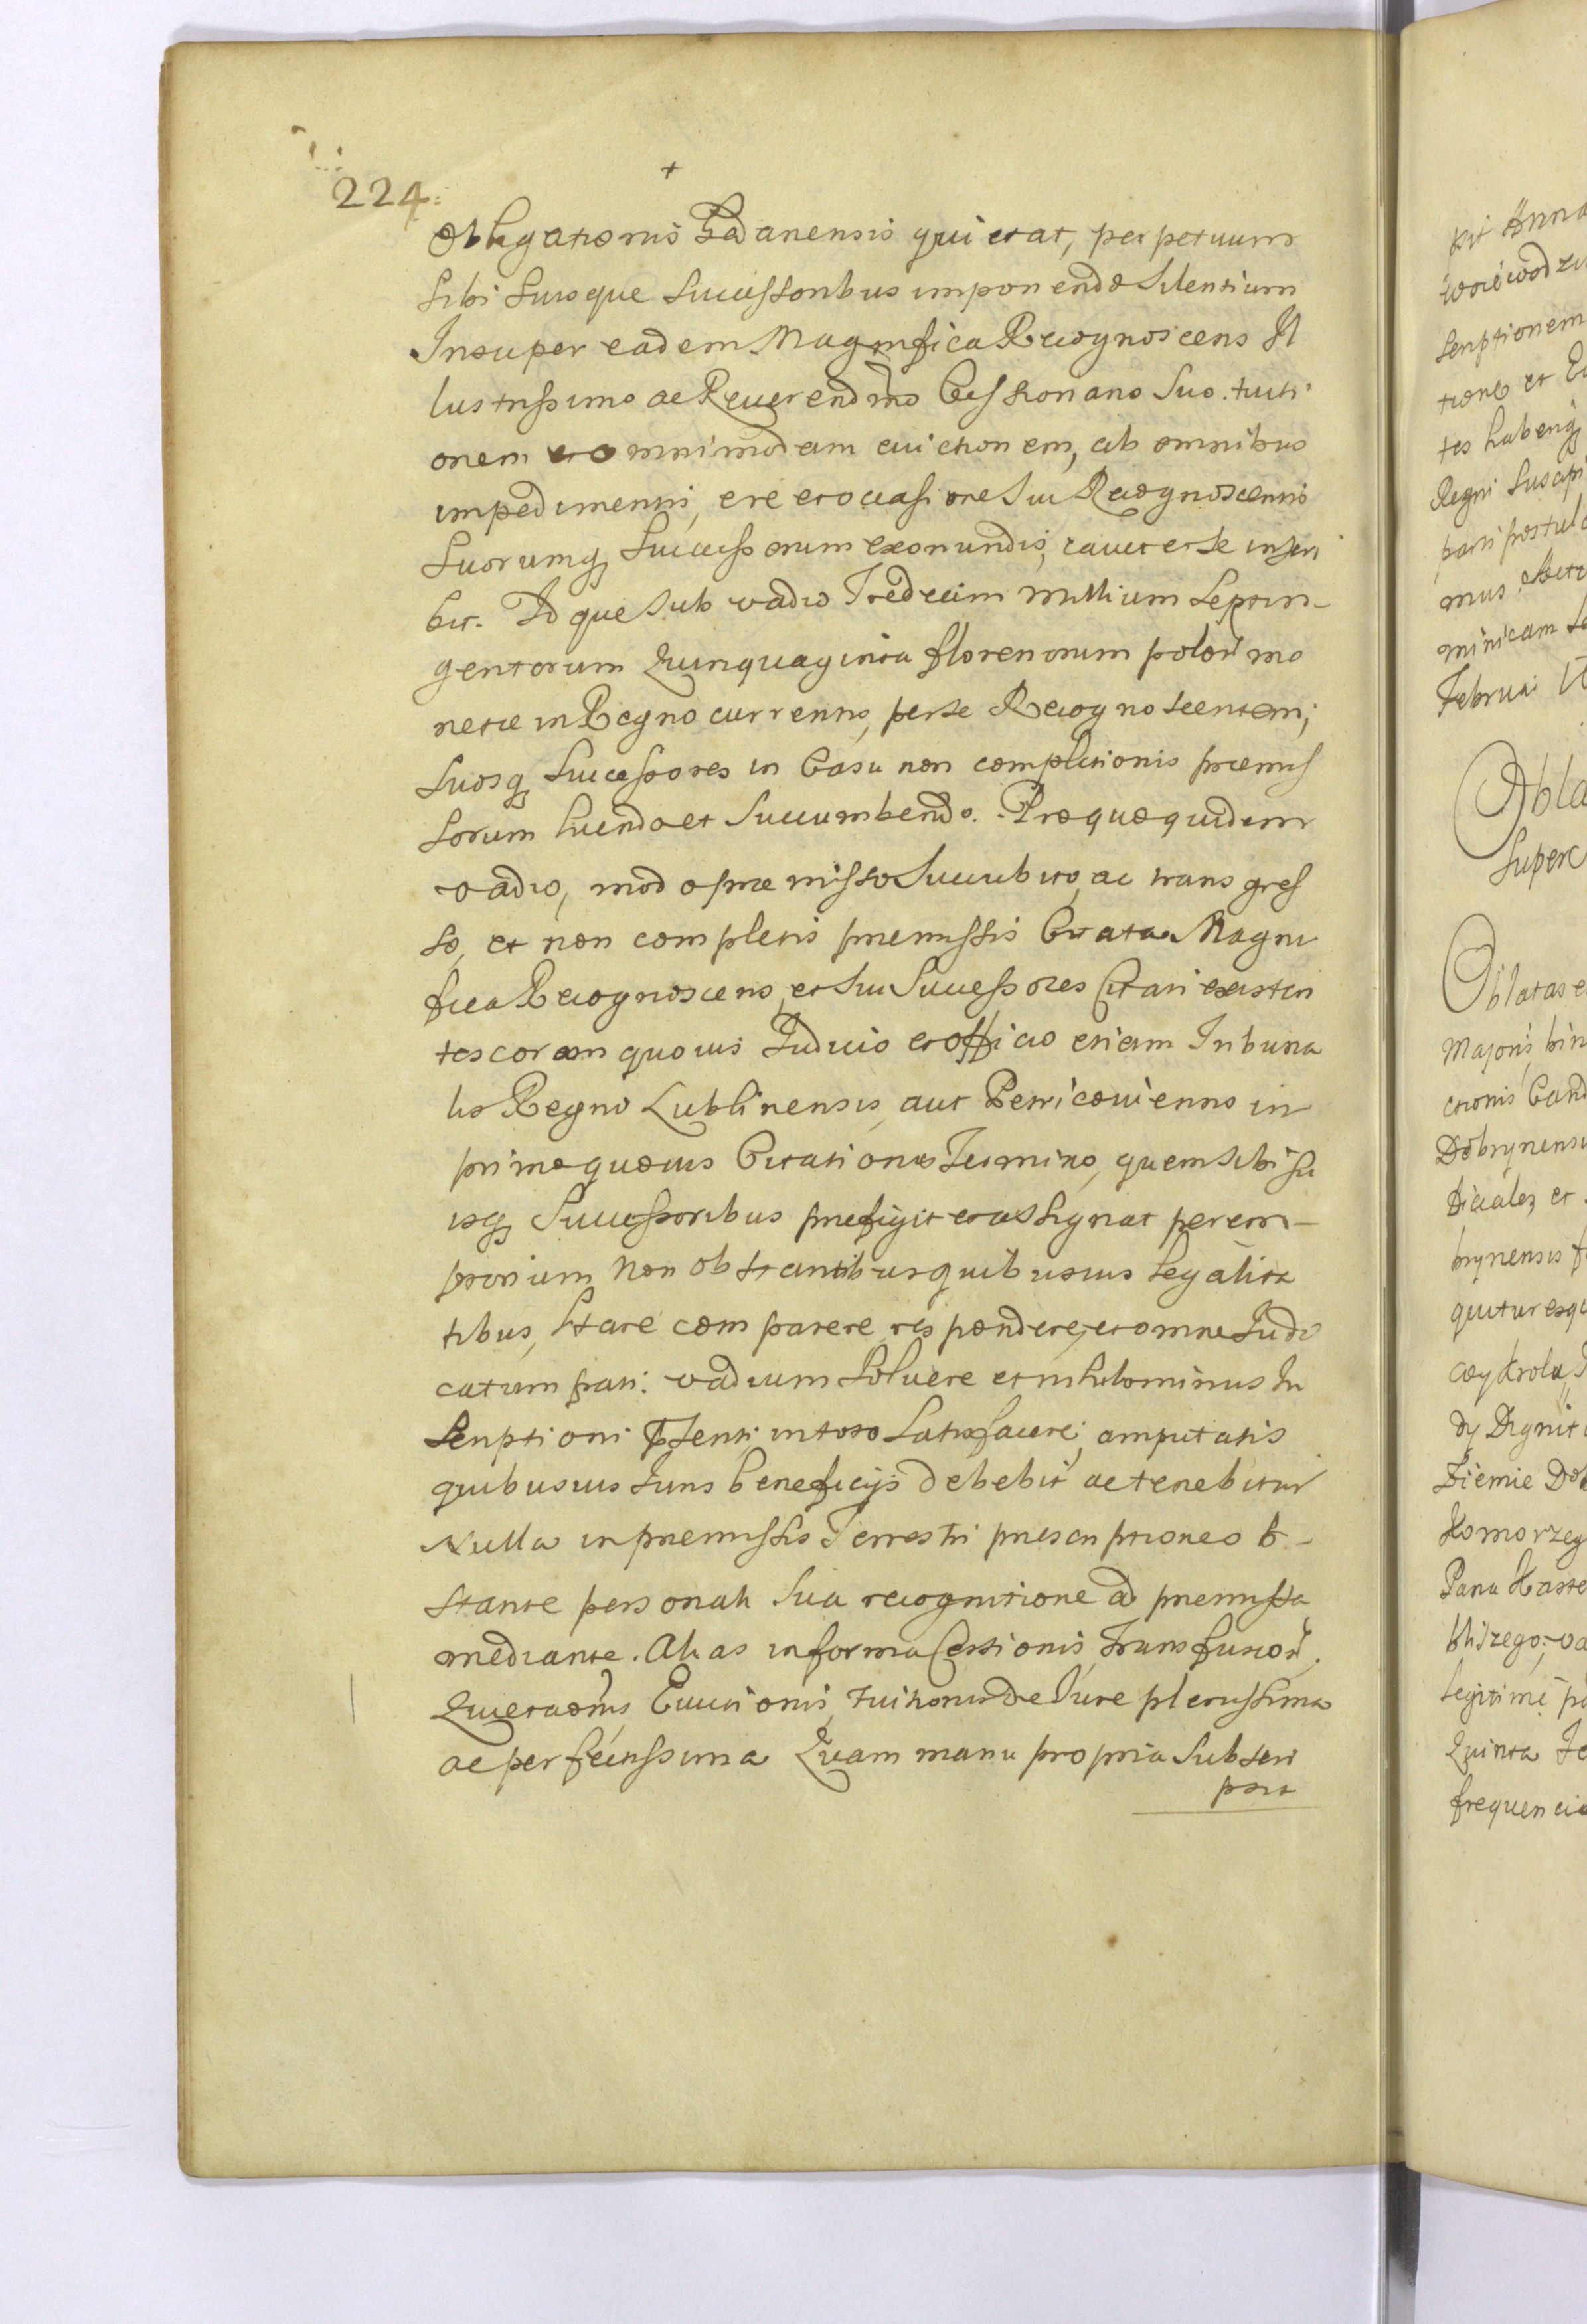 224.
Obligationis Gedanensis quietat, perpetuum
Sibi Suisque Successoribus imponendo Silentium
Insuper eadem Magnifica Recognoscens Il
lustrissimo ac Reverendmo Cessionario Suo. tuiti
onem et omnimodam evictionem, ab omnibus
impedimentis, ere et occasione Sui Recognoscentis
Suorumq Successorum exoriundis, cavet et se inscri
bit. Idque Sub vadio Tredecim millium Septin-
gentorum Quinquaginta florenorum polon mo
netae in Regno currentis, per se Recognoscentem,
Suosq Successores in Casu non completionis praemis
Sorum luendo et Succumbendo. Pro quo quidem
vadio, modo praemisso Succubito, ac transgres
So, et non completis praemissis Citata Magni
fica Recognoscens, et Sui Successores Citati existen
tes coram quovis Iudicio et officio etiam Tribuna
lis Regni Lublinensis, aut Petricoviensis in
primo quovis Citationis Termino, quem Sibi Su
isq Successoribus praefigit et assignat perem-
ptorium non obstantibus quibusvis legalita
tibus, Stare comparere, respondere, et omne Iudi
catum pati: vadium Solvere et nihilominus In
Scriptioni psenti in toto Satisfacere, amputatis
quibusvis Iuris beneficijs debebit ac tenebitur
Nulla in praemissis Terrestri praescriptione ob-
stante personali Sua recognitione ad praemissa
mediante. Alias in forma Cessionis, Transfusion,
Quietaonis Evictionis, tuitionis de Iure plenissima
ac perfectissima Quam manu propria Subscri
psit
kit Anna
woiewodzi
Scriptionem
tione et Ev
tes habenq
Regni Suscipi
parti postula
mus. Actu
minicam
Februari
Obla
Super
Oblatas e
Majoris bin
ctionis Cand
Dobrynensi
diciales et
brynensis f
quitur
dy Dignit
Ziemie Dob
Komorzeg
Pana Kaste
bliszego
legitime
Quinta
frequencia